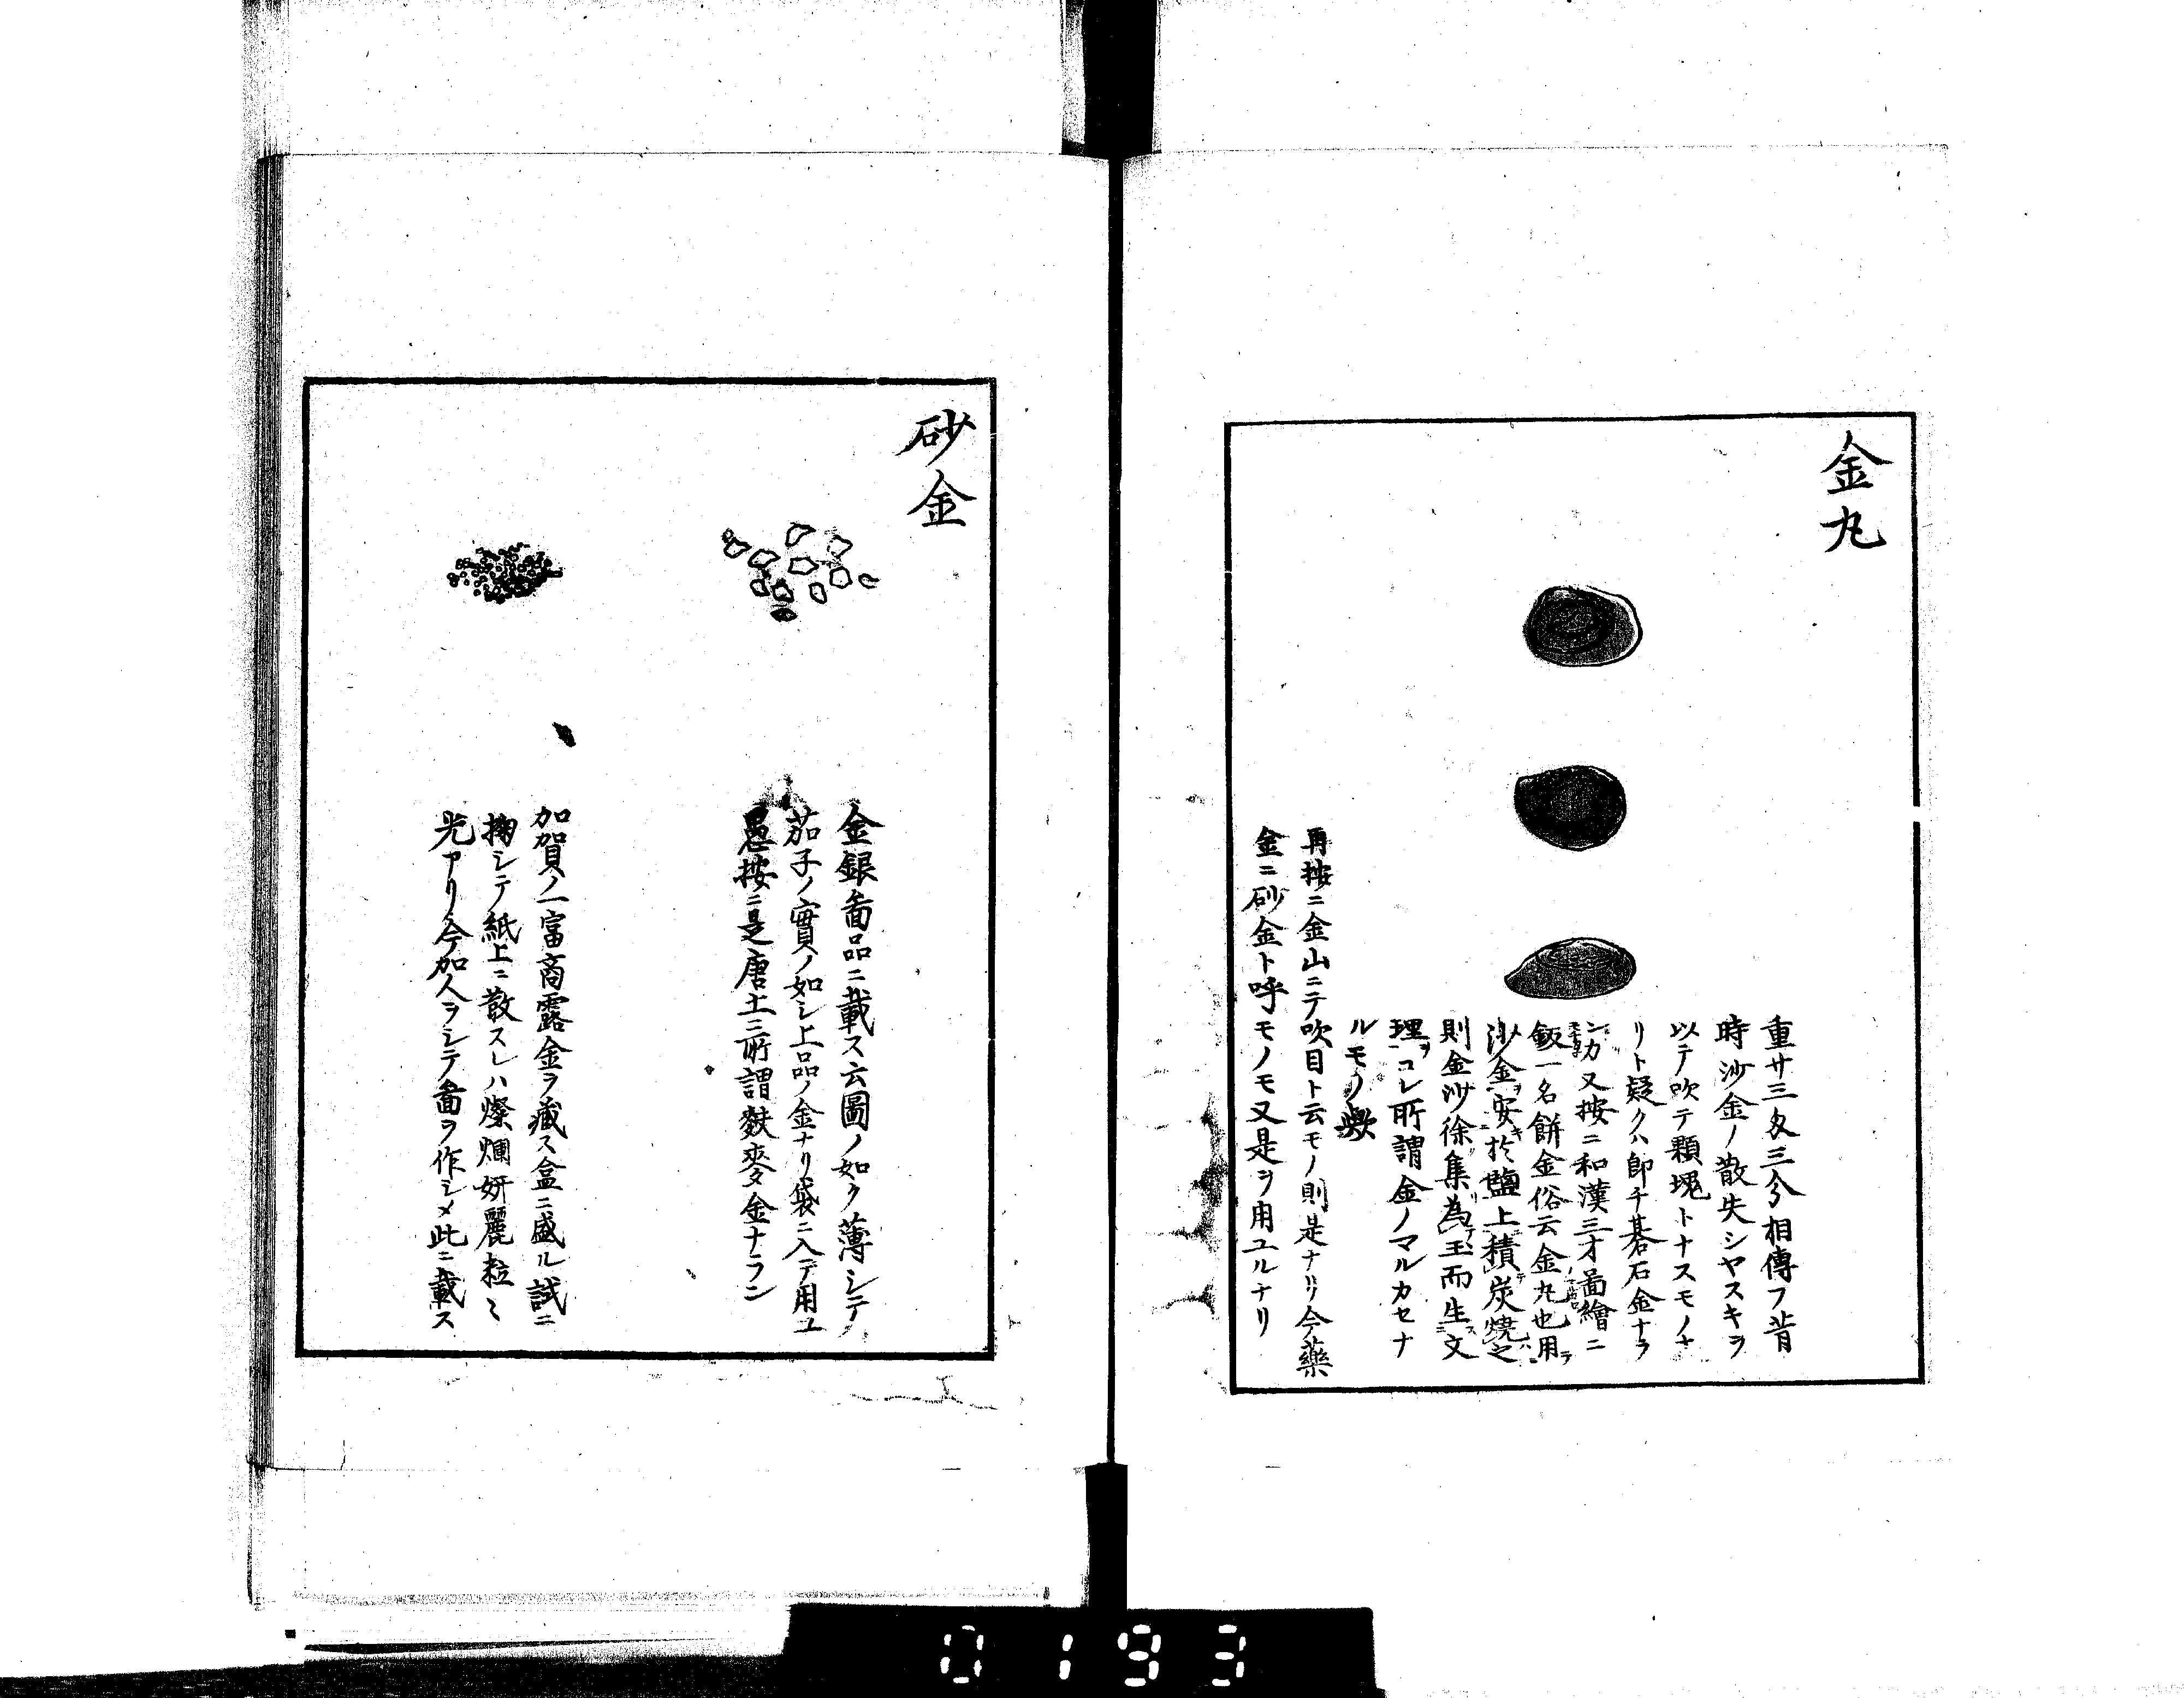 金丸
重サ三匁三分相傳フ昔
時沙金ノ散失シヤスキヲ
以テ吹テ顆塊トナスモノナ
リト疑クハ即チ碁石金ナラ
ン カ又按ニ和漢三才啚繪ニ
鈑一名餅金俗云金丸也用
沙金安於鹽上積炭焼之
則金沙徐集為玉而生文
理コレ所謂金ノマルカセナ
ルモノ歟
再按ニ金山ニテ吹目ト云モノ則是ナリ今藥
金ニ砂金ト呼モノモ又是ヲ用ユルナリ
砂金
金銀啚品ニ載ス云圖ノ如ク薄シテ
茄子ノ實ノ如シ上品ノ金ナリ袋ニ入テ用ユ
愚按ニ是唐土ニ所謂麩麥金ナラン
加賀ノ一富商露金ヲ藏ス盒ニ盛ル試ニ
掬シテ紙上ニ散スレハ燦爛妍麗粒〻
光アリ今加人ヲシテ啚ヲ作シメ此ニ載ス
0193